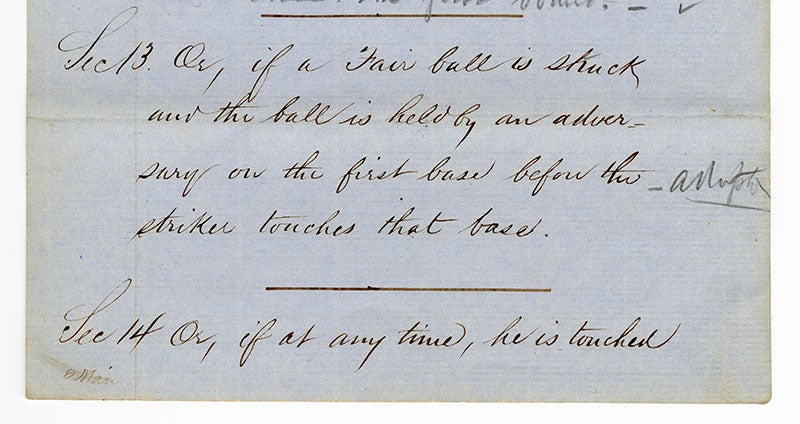 the first bound. –
Sec 13. Or, if a Fair ball is struck
and the ball is held by an adver-
sary on the first base before the
– adopted
striker touches that base.
Sec 14 Or, if at any time, he is touched